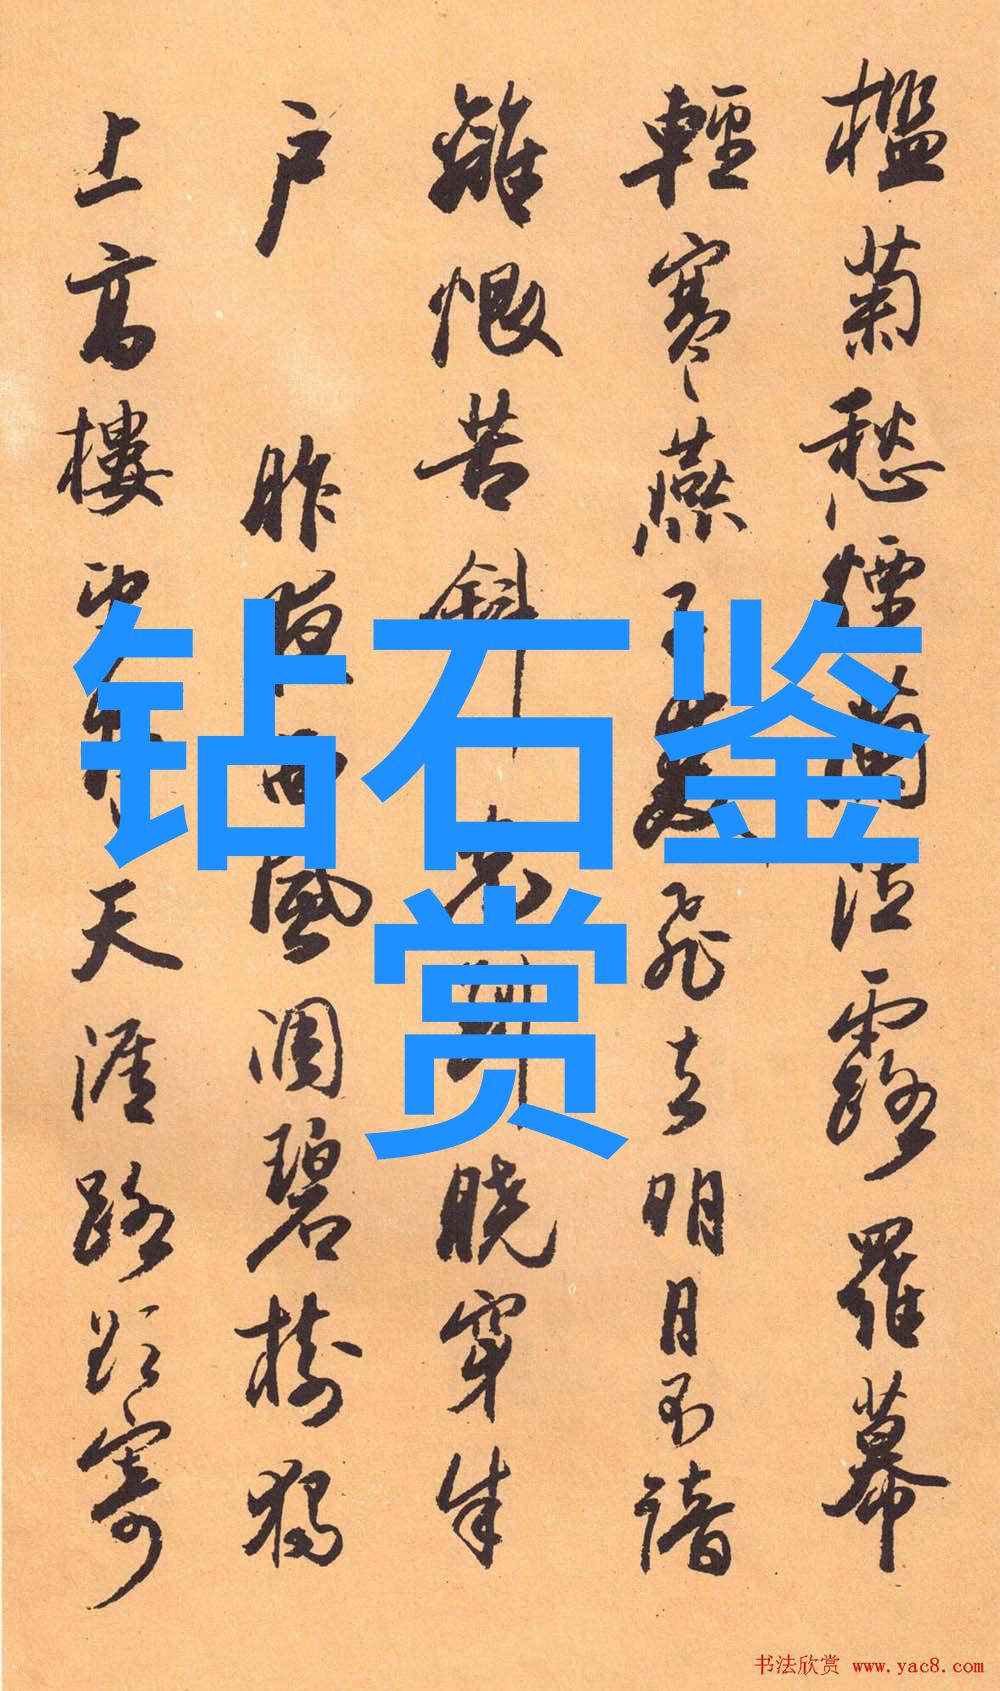 檻菊愁煙蘭泣露羅幕
輕寒燕子雙飛去明月不諳
離恨苦斜光到曉穿朱
户 昨夜西風凋碧樹獨
上高樓望盡天涯路欲寄
钻石鉴
赏
书法欣赏 www.yac8.com